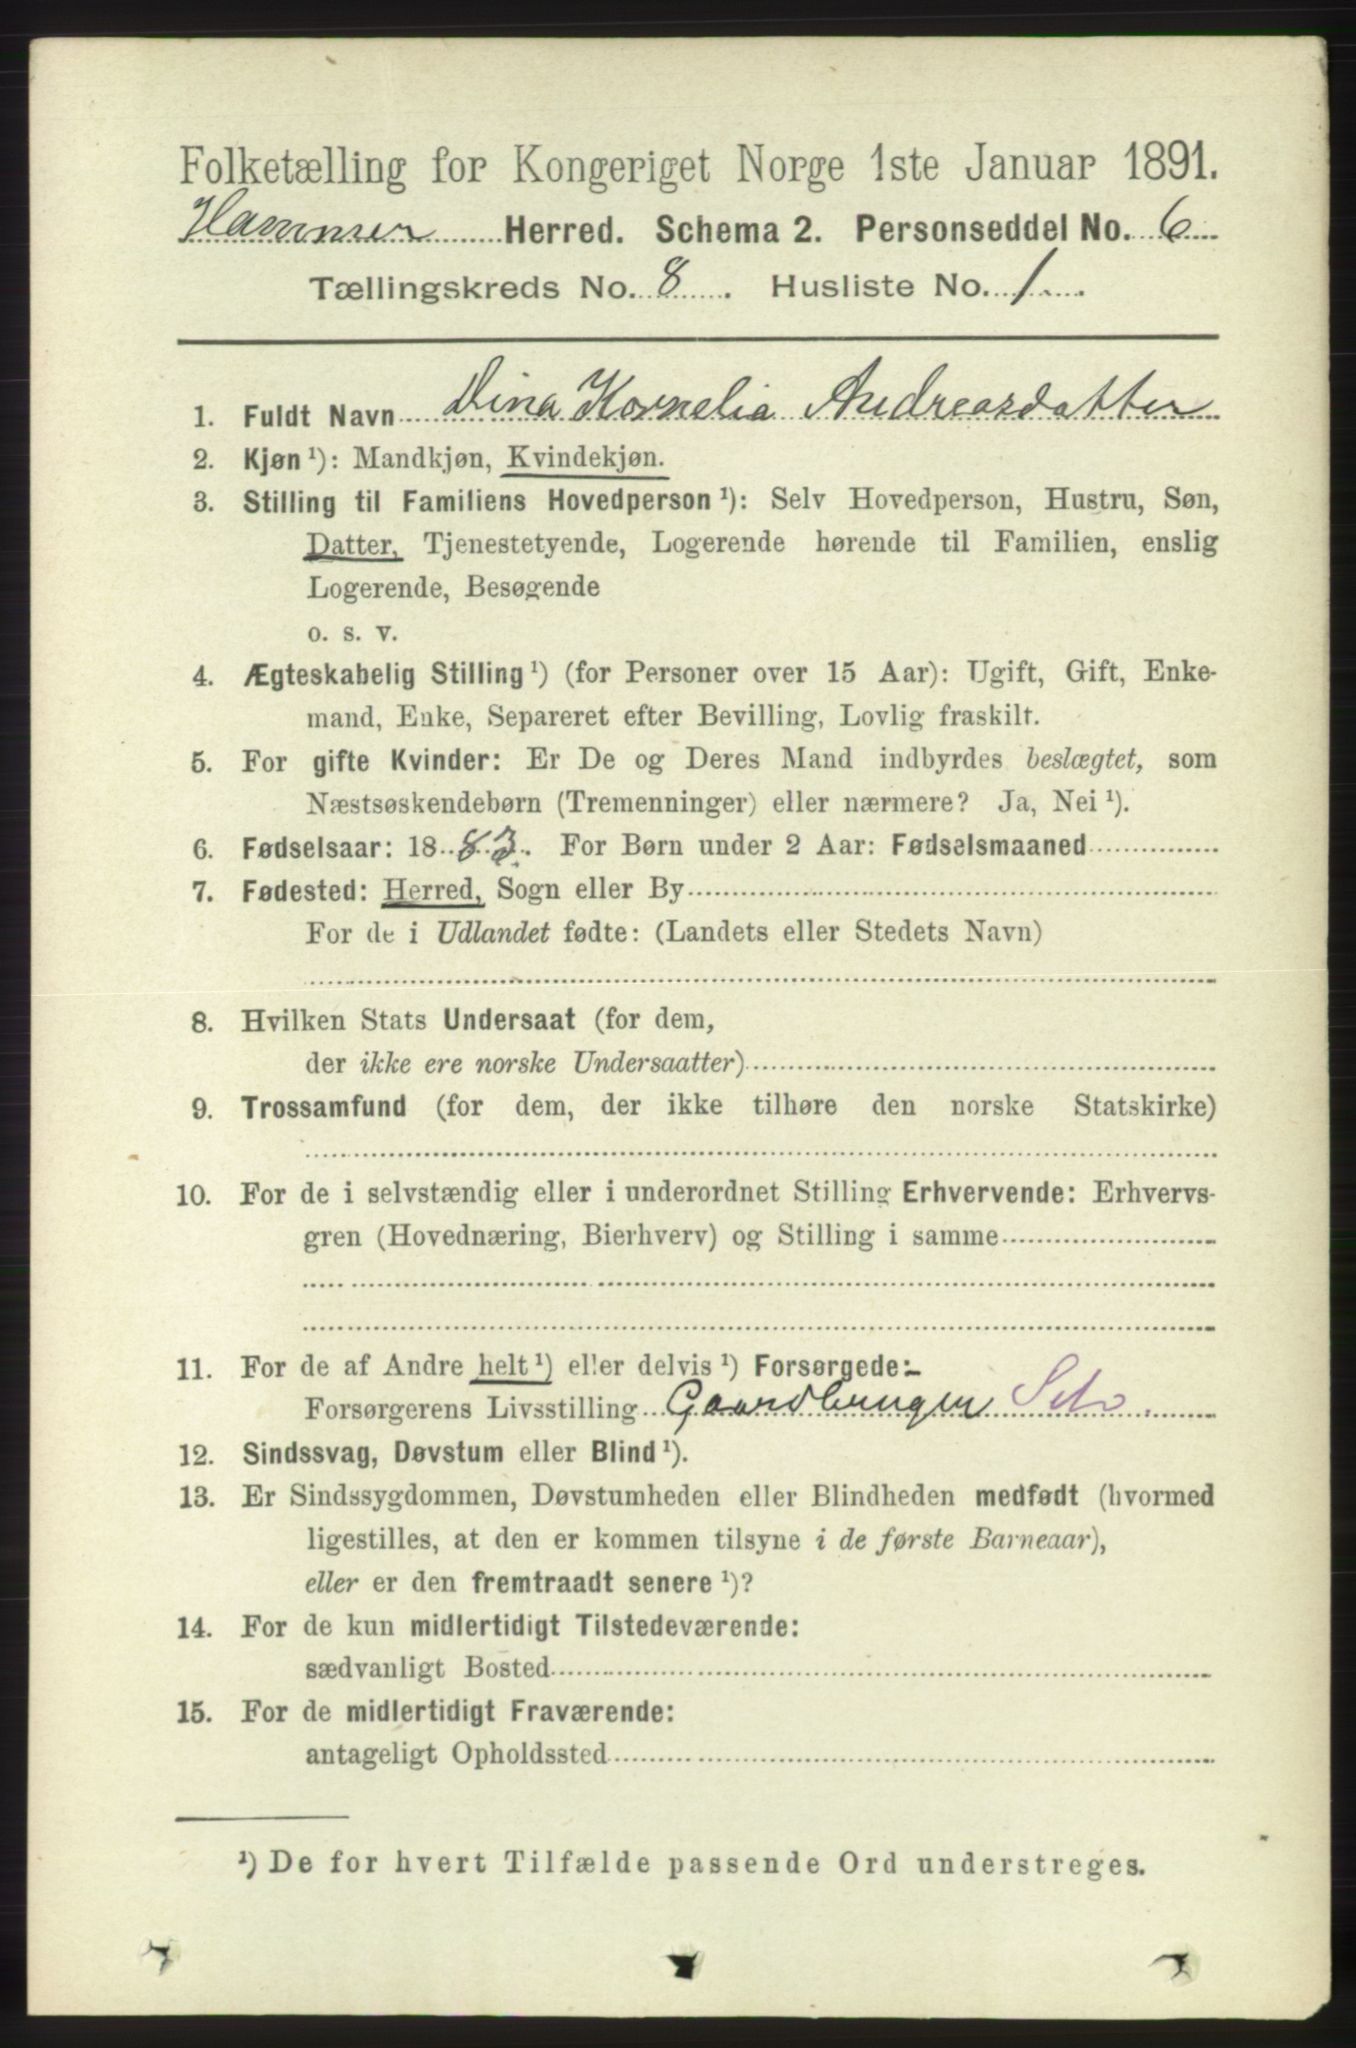 Folketælling for Kongeriget Norge 1ste Januar 1891.
Hammer Herred. Schema 2. Personseddel No. 6
Tællingskreds No. 8. Husliste No. 1.
1. Fuldt Navn Dina Kornelia Andreasdatter
2. Kjøn ¹): Mandkjøn, Kvindekjøn.
3. Stilling til Familiens Hovedperson ¹): Selv Hovedperson, Hustru, Søn,
Datter, Tjenestetyende, Logerende hørende til Familien, enslig
Logerende, Besøgende
o. s. v.
4. Ægteskabelig Stilling ¹) (for Personer over 15 Aar): Ugift, Gift, Enke-
mand, Enke, Separeret efter Bevilling, Lovlig fraskilt.
5. For gifte Kvinder: Er De og Deres Mand indbyrdes beslægtet, som
Næstsøskendebørn (Tremenninger) eller nærmere? Ja, Nei ¹).
6. Fødselsaar: 1883. For Børn under 2 Aar: Fødselsmaaned
7. Fødested: Herred, Sogn eller By
For de i Udlandet fødte: (Landets eller Stedets Navn)
8. Hvilken Stats Undersaat (for dem,
der ikke ere norske Undersaatter)
9. Trossamfund (for dem, der ikke tilhøre den norske Statskirke)
10. For de i selvstændig eller i underordnet Stilling Erhvervende: Erhvervs-
gren (Hovednæring, Bierhverv) og Stilling i samme
11. For de af Andre helt ¹) eller delvis ¹) Forsørgede:
Forsørgerens Livsstilling Gaardbruger Selv.
12. Sindssvag, Døvstum eller Blind ¹).
13. Er Sindssygdommen, Døvstumheden eller Blindheden medfødt (hvormed
ligestilles, at den er kommen tilsyne i de første Barneaar),
eller er den fremtraadt senere ¹)?
14. For de kun midlertidigt Tilstedeværende:
sædvanligt Bosted
15. For de midlertidigt Fraværende:
antageligt Opholdssted
¹) De for hvert Tilfælde passende Ord understreges.